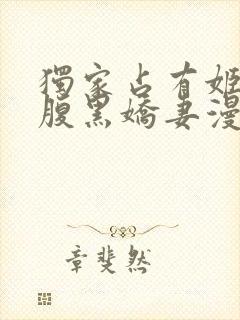 獨家占有姬
腹黑嬌妻漫
章斐然